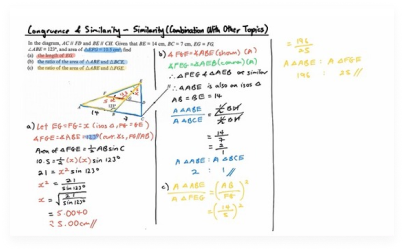 Congruence & Similarity - Similarity (Combination With Other Topics)
In the diagram, AC // FD and BE // CH. Given that BE = 14 cm, BC = 7 cm, EG = FG,
∠ABE = 123°, and area of △EFG = 10.5 cm², find
(a) the length of EG.
(b) the ratio of the area of △ABE and △BCE.
(c) the ratio of the area of △ABE and △FGE.
a) Let EG = FG = x (isos △,
∠FGE = ∠ABE = 123°
Area of △FGE = ½ ab sin C
10.5 = ½ (x)(x) sin 123°
21 = x² sin 123°
x² = 21 / sin 123°
x = √(21 / sin 123°)
= 5.0040
≈ 5.00 cm //
b) ∠FGE = ∠ABE (shown) (A)
∠FEG = ∠AEB (common) (A)
∴ △FGE & △AEB are similar
∴ △ABE is also an isos △
AB = BE = 14
A △ABE / A △BCE
= 14 / 7
= 2 / 1
A △ABE : A △BCE
2 : 1 //
c) A △ABE / A △FEG = (AB / FG)²
= (14 / 5)²
= 196 / 25
A △ABE : A △FGE
196 : 25 //